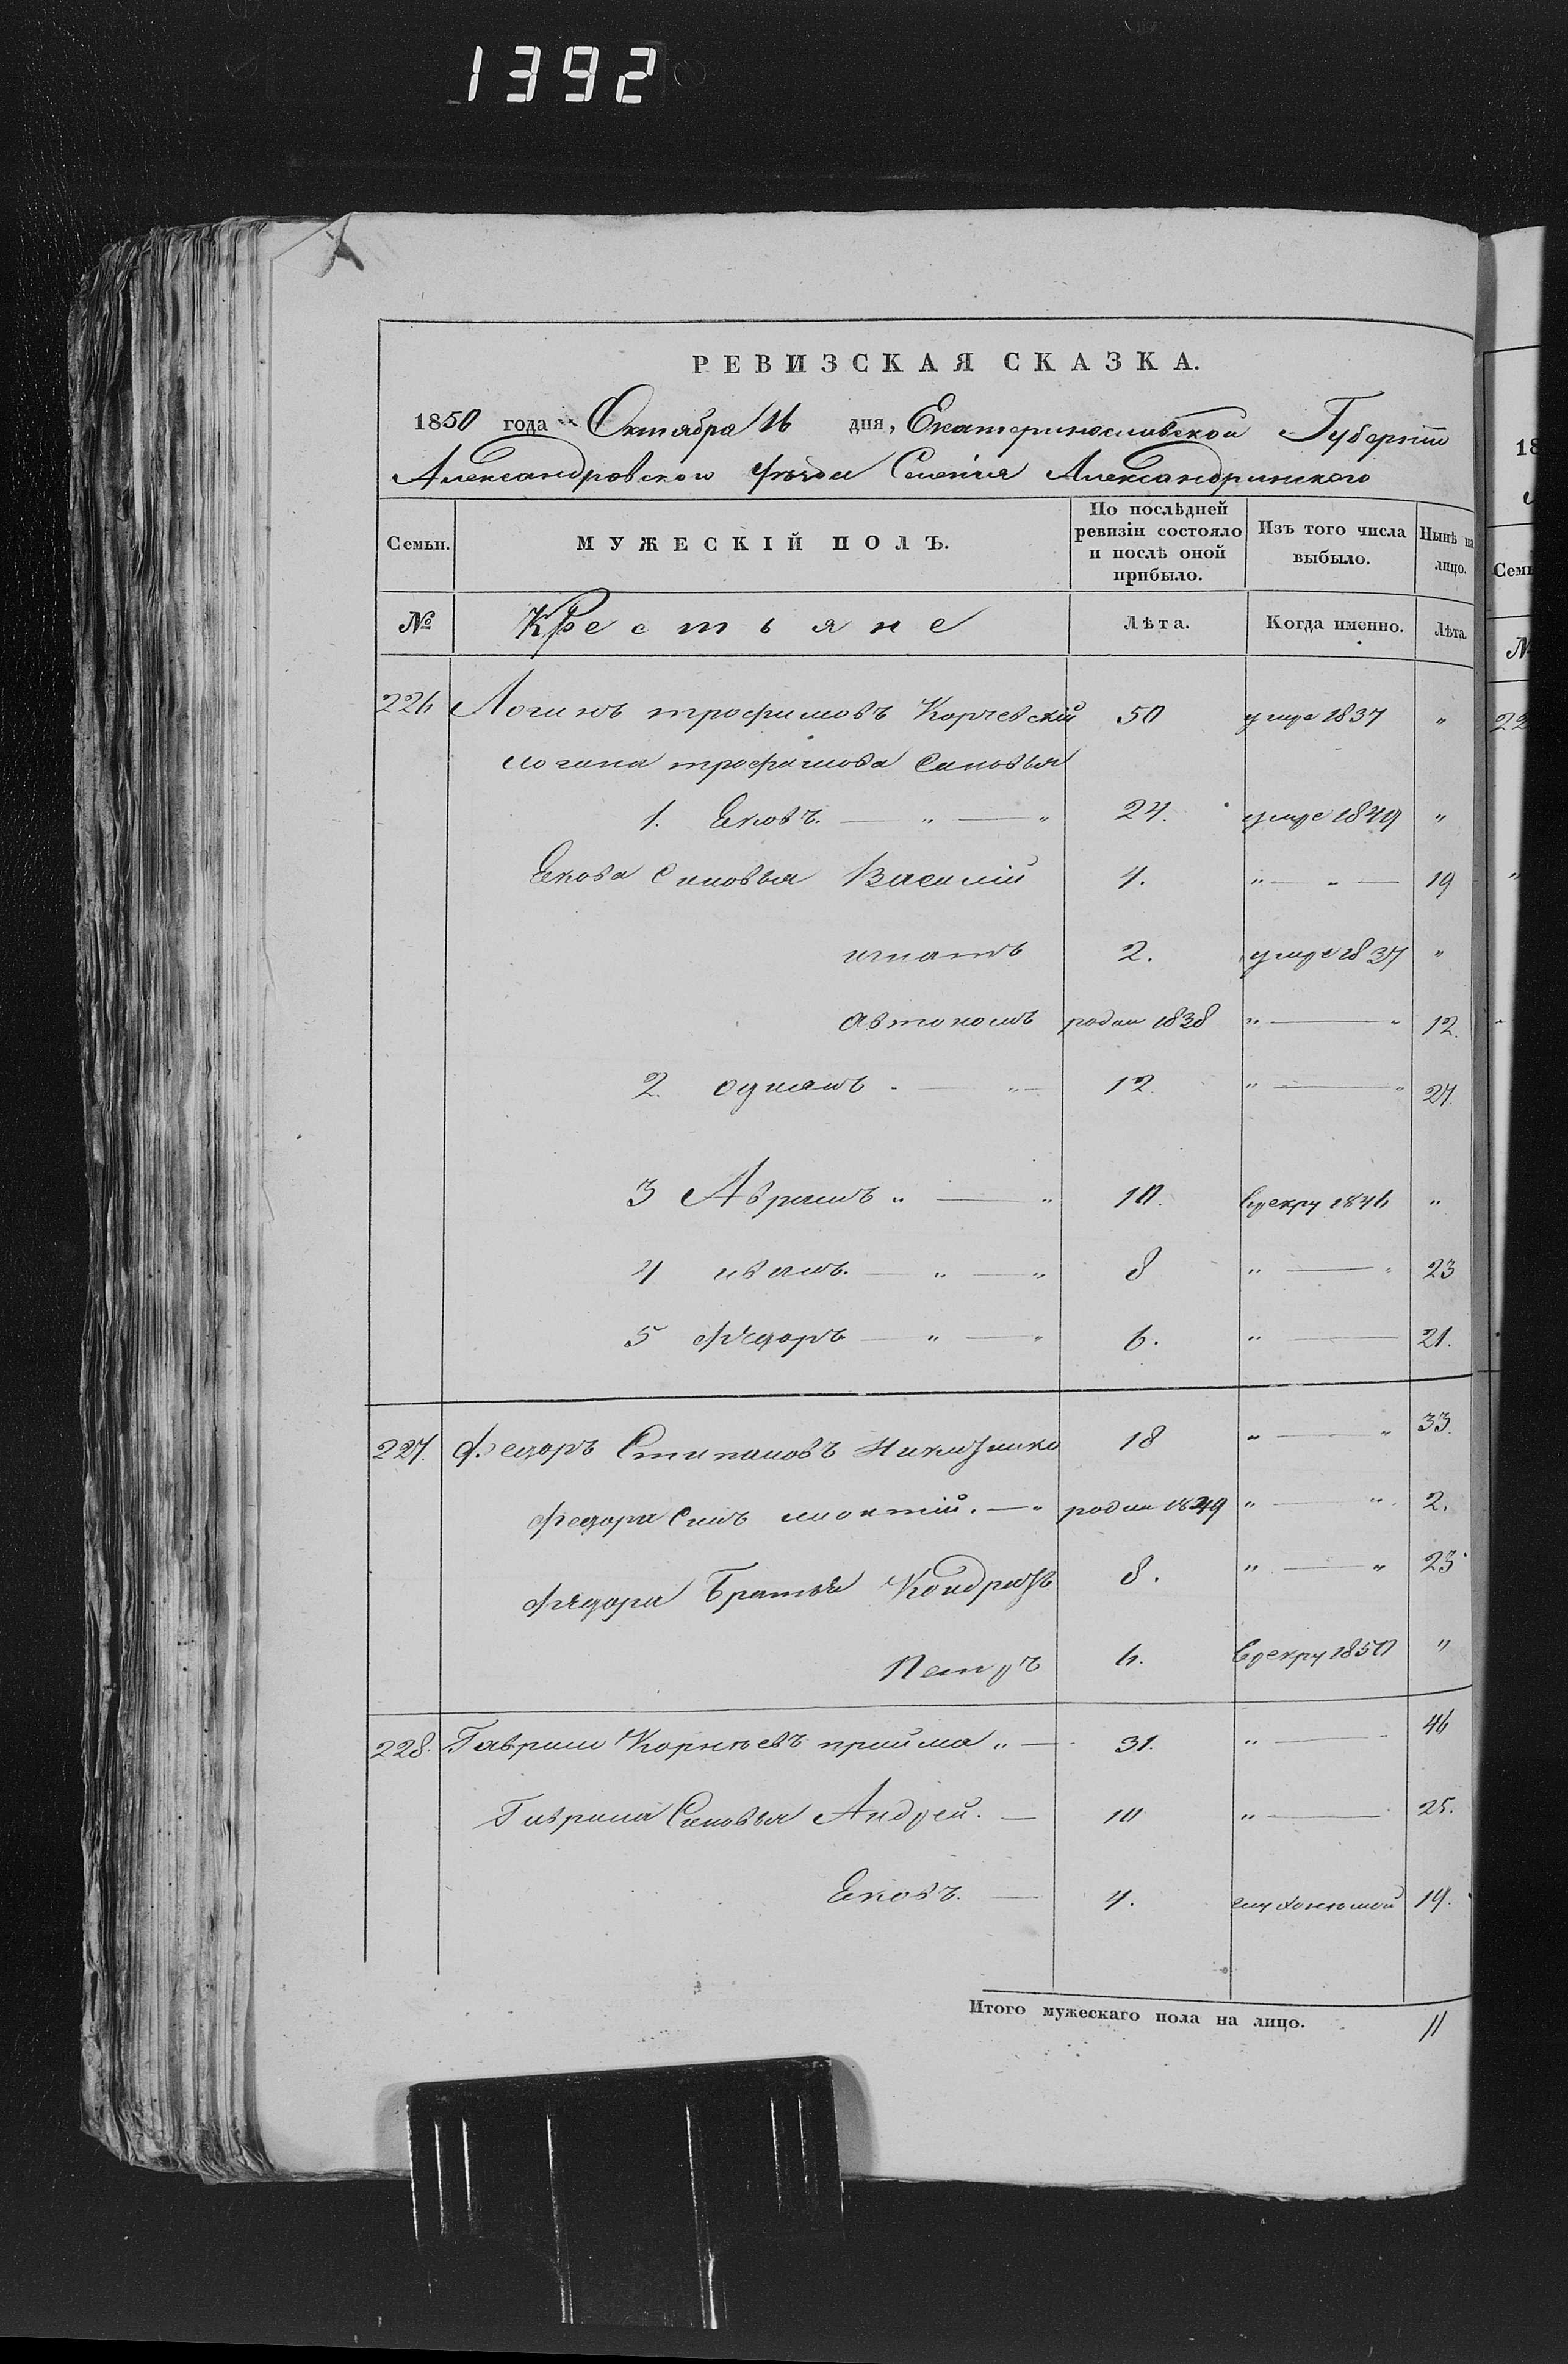 1392
РЕВИЗСКАЯ СКАЗКА.
1850 года Октября 16 дня, Екатеринославской Губернии
Александровского уѣзда Селенія Александринского
Семьи. МУЖЕСКІЙ ПОЛЪ. По послѣдней ревизіи состояло и послѣ оной прибыло. Изъ того числа выбыло. Нынѣ на лицо.
№ Крестьяне Лѣта. Когда именно. Лѣта.
226 Логинъ трофимовъ Корчевскій 50 умре 1837 "
логина трофимова Синовья
1.Ековъ. — " — " 24. умре 1849 "
Екова Синовья Василій 4. " — " — 19
игнатъ 2. умре 1837 "
автономъ родил 1838 " — " 12.
2. — " — 12. " — " 27.
3 Аврамъ " — " 10. врекру 1846 "
4 иванъ. — " — " 8 " — " 23
5 Федоръ — " — " 6. " — 21.
227. Федоръ Стипановъ 18 " — " 33.
Федора Синъ . — " родил 1849 " — " 2.
Федора Братья Кондратъ 8. " — " 23
Петръ 6. врекру 1850 "
228. Гаврило Корнѣевъ прийма " — 31. " — 46
Гаврила Синовья Андрей. — 10 " — 25.
Ековъ. — 4. 19.
Итого мужескаго пола на лицо. 11